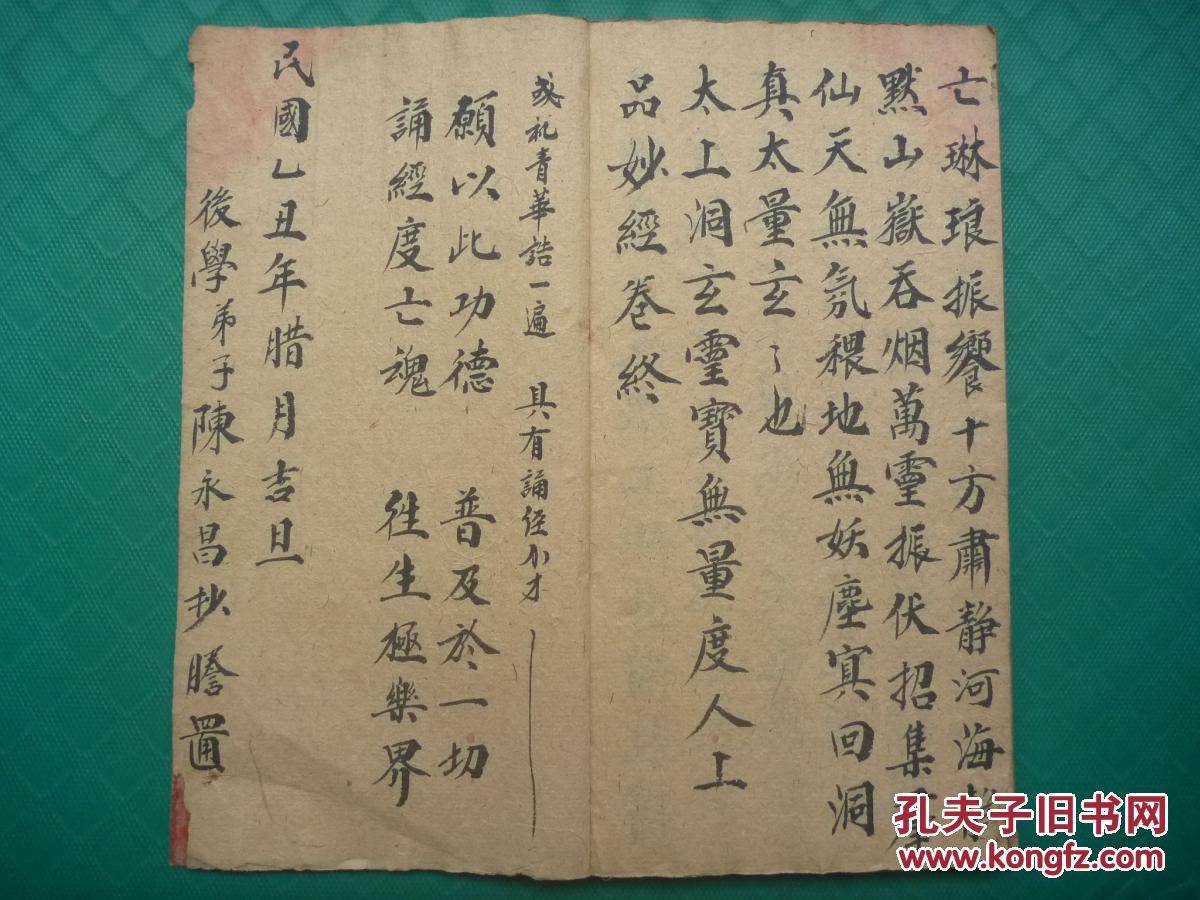 亡琳琅振響十方肅靜河海
黙山嶽吞烟萬靈振伏招集
仙天無氛穢地無妖塵寘回洞
真太量玄〻也
太上洞玄靈寳無量度人上
品妙經卷終
或礼青華誥一遍 具有誦経小才
願以此功德 普及於一切
誦經度亡魂 徃生極樂界
民國乙丑年腊月吉旦
後學弟子陳永昌抄謄置
孔夫子旧书网
www.kongfz.com